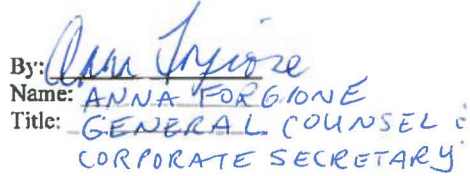 By: Anna Forgione
Name: ANNA FORGIONE
Title: GENERAL COUNSEL &
CORPORATE SECRETARY